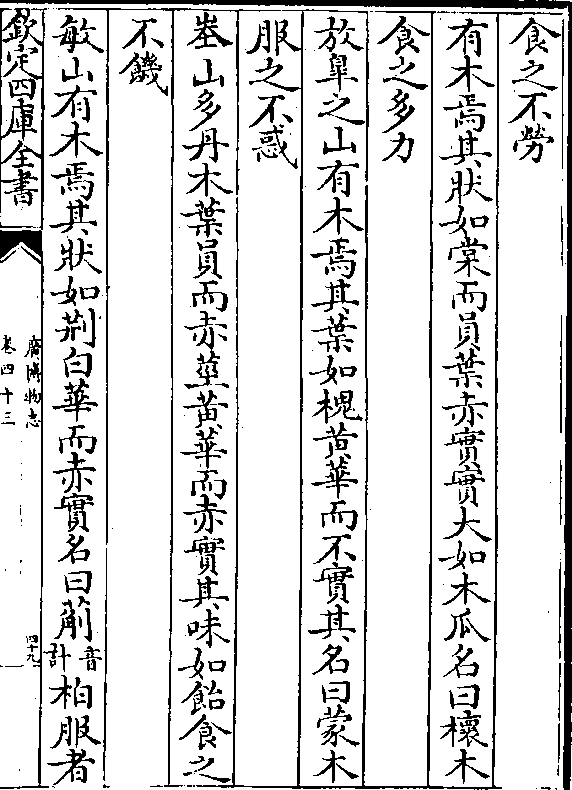 食之不勞
有木焉其狀如棠而員葉赤實實大如木瓜名曰櫰木
食之多力
放臯之山有木焉其葉如槐黄華而不實其名曰蒙木
服之不惑
峚山多丹木葉員而赤莖黄華而赤實其味如飴食之
不饑
敏山有木焉其狀如荆白華而赤實名曰葪音計柏服者
欽定四庫全書
廣博物志
卷四十三
四十九